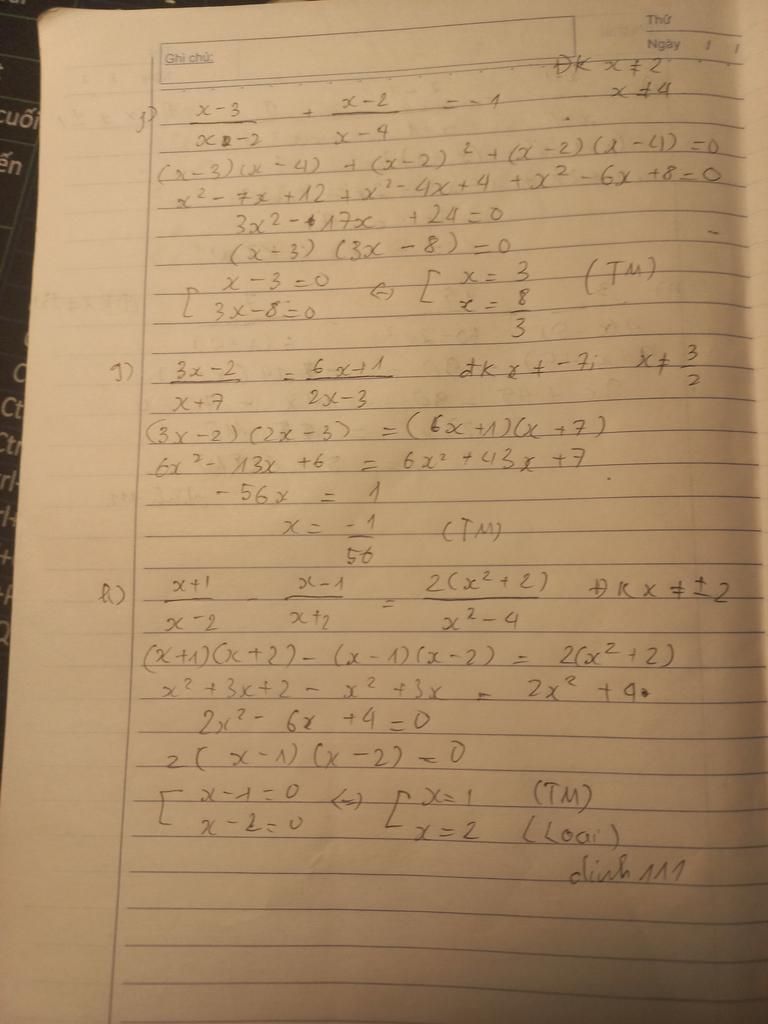 Thứ
Ghi chú:
Ngày
ĐK x ≠ 2
x ≠ 4
f) (x-3)/(x-2) + (x-2)/(x-4) = -1
(x-3)(x-4) + (x-2)² + (x-2)(x-4) = 0
x² - 7x + 12 + x² - 4x + 4 + x² - 6x + 8 = 0
3x² - 17x + 24 = 0
(x-3) (3x - 8) = 0
[ x - 3 = 0 ⇔ [ x = 3 (TM)
3x - 8 = 0 x = 8/3
g) (3x-2)/(x+7) = (6x+1)/(2x-3) đk x ≠ -7; x ≠ 3/2
(3x-2)(2x-3) = (6x+1)(x+7)
6x² - 13x + 6 = 6x² + 43x + 7
- 56x = 1
x = -1/56 (TM)
h) (x+1)/(x-2) - (x-1)/(x+2) = 2(x²+2)/(x²-4) ĐK x ≠ ±2
(x+1)(x+2) - (x-1)(x-2) = 2(x²+2)
x² + 3x + 2 - x² + 3x = 2x² + 4
2x² - 6x + 4 = 0
2(x-1)(x-2) = 0
[ x - 1 = 0 ⇔ [ x = 1 (TM)
x - 2 = 0 x = 2 (Loai)
dinh 111